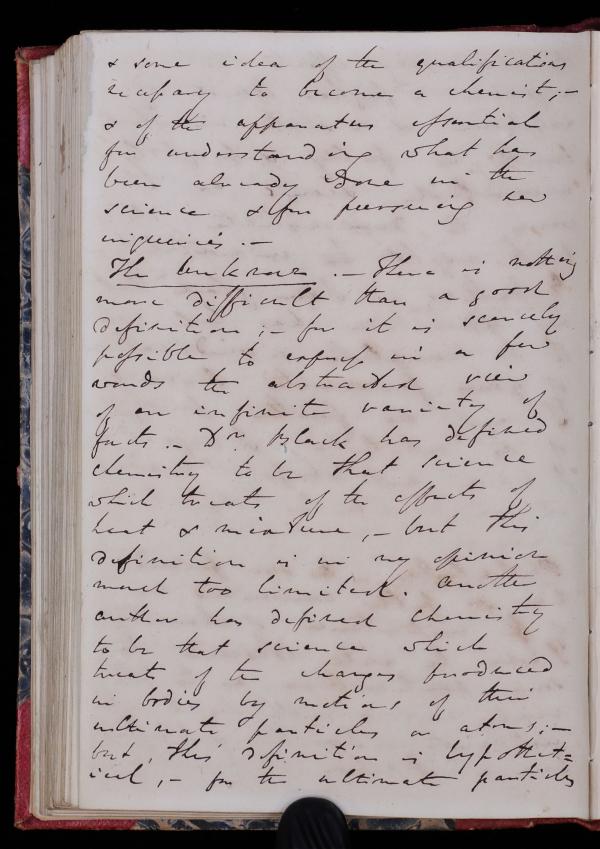 & some idea of the qualifications
necessary to become a chemist; –
& of the apparatus essential
for understanding what has
been already Done in the
science & for pursuing new
inquiries. –
The Unknown . – There is nothing
more difficult than a good
definition; – for it is scarcely
possible to express in a few
words the abstracted view
of an infinite variety of
facts. – Dr. Black has defined
chemistry to be that science
which treats of the effects of
heat & mixture, – but this
definition is in my opinion
much too limited. Another
author has defined Chemistry
to be that science which
treats of the changes produced
in bodies by motions of their
ultimate particles or atoms; –
but, this definition is hypothet=
ical, – for the ultimate particles